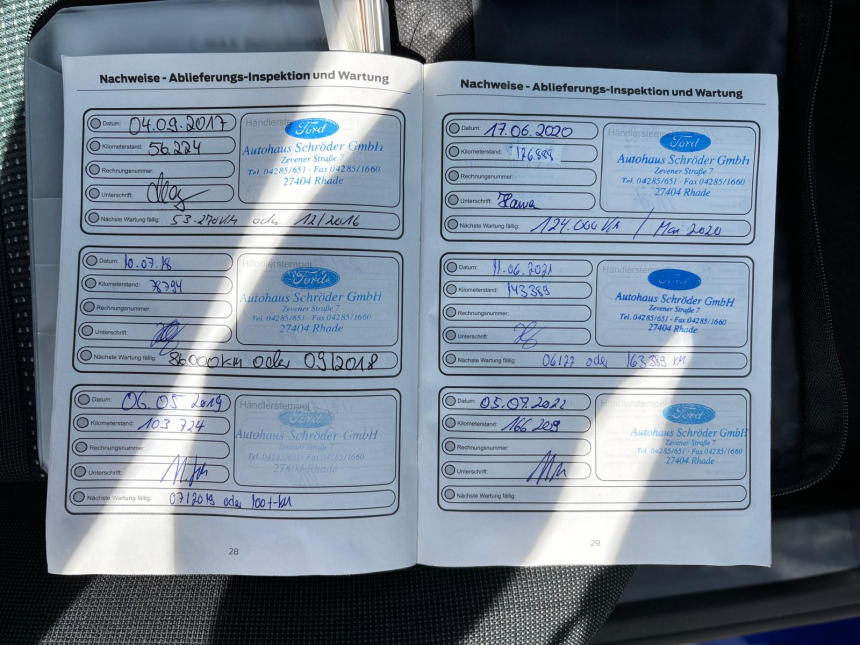 Nachweise - Ablieferungs-Inspektion und Wartung
Datum: 04.09.2017
Kilometerstand: 56224
Rechnungsnummer:
Unterschrift:
Nächste Wartung fällig: 53.270 KM oder 12/2016
Händlerstempel
Ford
Autohaus Schröder GmbH
Zevener Straße 7
Tel. 04285/651 - Fax 04285/1660
27404 Rhade
Datum: 10.07.18
Kilometerstand: 78794
Rechnungsnummer:
Unterschrift:
Nächste Wartung fällig: 86000km oder 09/2018
Händlerstempel
Ford
Autohaus Schröder GmbH
Zevener Straße 7
Tel. 04285/651 - Fax 04285/1660
27404 Rhade
Datum: 06.05 2019
Kilometerstand: 103 724
Rechnungsnummer:
Unterschrift:
Nächste Wartung fällig: 07/2019 oder 100t-km
Händlerstempel
Ford
Autohaus Schröder GmbH
Zevener Straße 7
Tel. 04285/651 - Fax 04285/1660
27404 Rhade
28
Nachweise - Ablieferungs-Inspektion und Wartung
Datum: 17.06.2020
Kilometerstand:
Rechnungsnummer:
Unterschrift:
Nächste Wartung fällig: 124.000 KM / Mai 2020
Händlerstempel
Ford
Autohaus Schröder GmbH
Zevener Straße 7
Tel. 04285/651 - Fax 04285/1660
27404 Rhade
Datum: 11.06.2021
Kilometerstand: 143389
Rechnungsnummer:
Unterschrift:
Nächste Wartung fällig: 06/22 oder 163389 km
Händlerstempel
Ford
Autohaus Schröder GmbH
Zevener Straße 7
Tel. 04285/651 - Fax 04285/1660
27404 Rhade
Datum: 05.07.2022
Kilometerstand: 166 209
Rechnungsnummer:
Unterschrift:
Nächste Wartung fällig:
Händlerstempel
Ford
Autohaus Schröder GmbH
Zevener Straße 7
Tel. 04285/651 - Fax 04285/1660
27404 Rhade
29